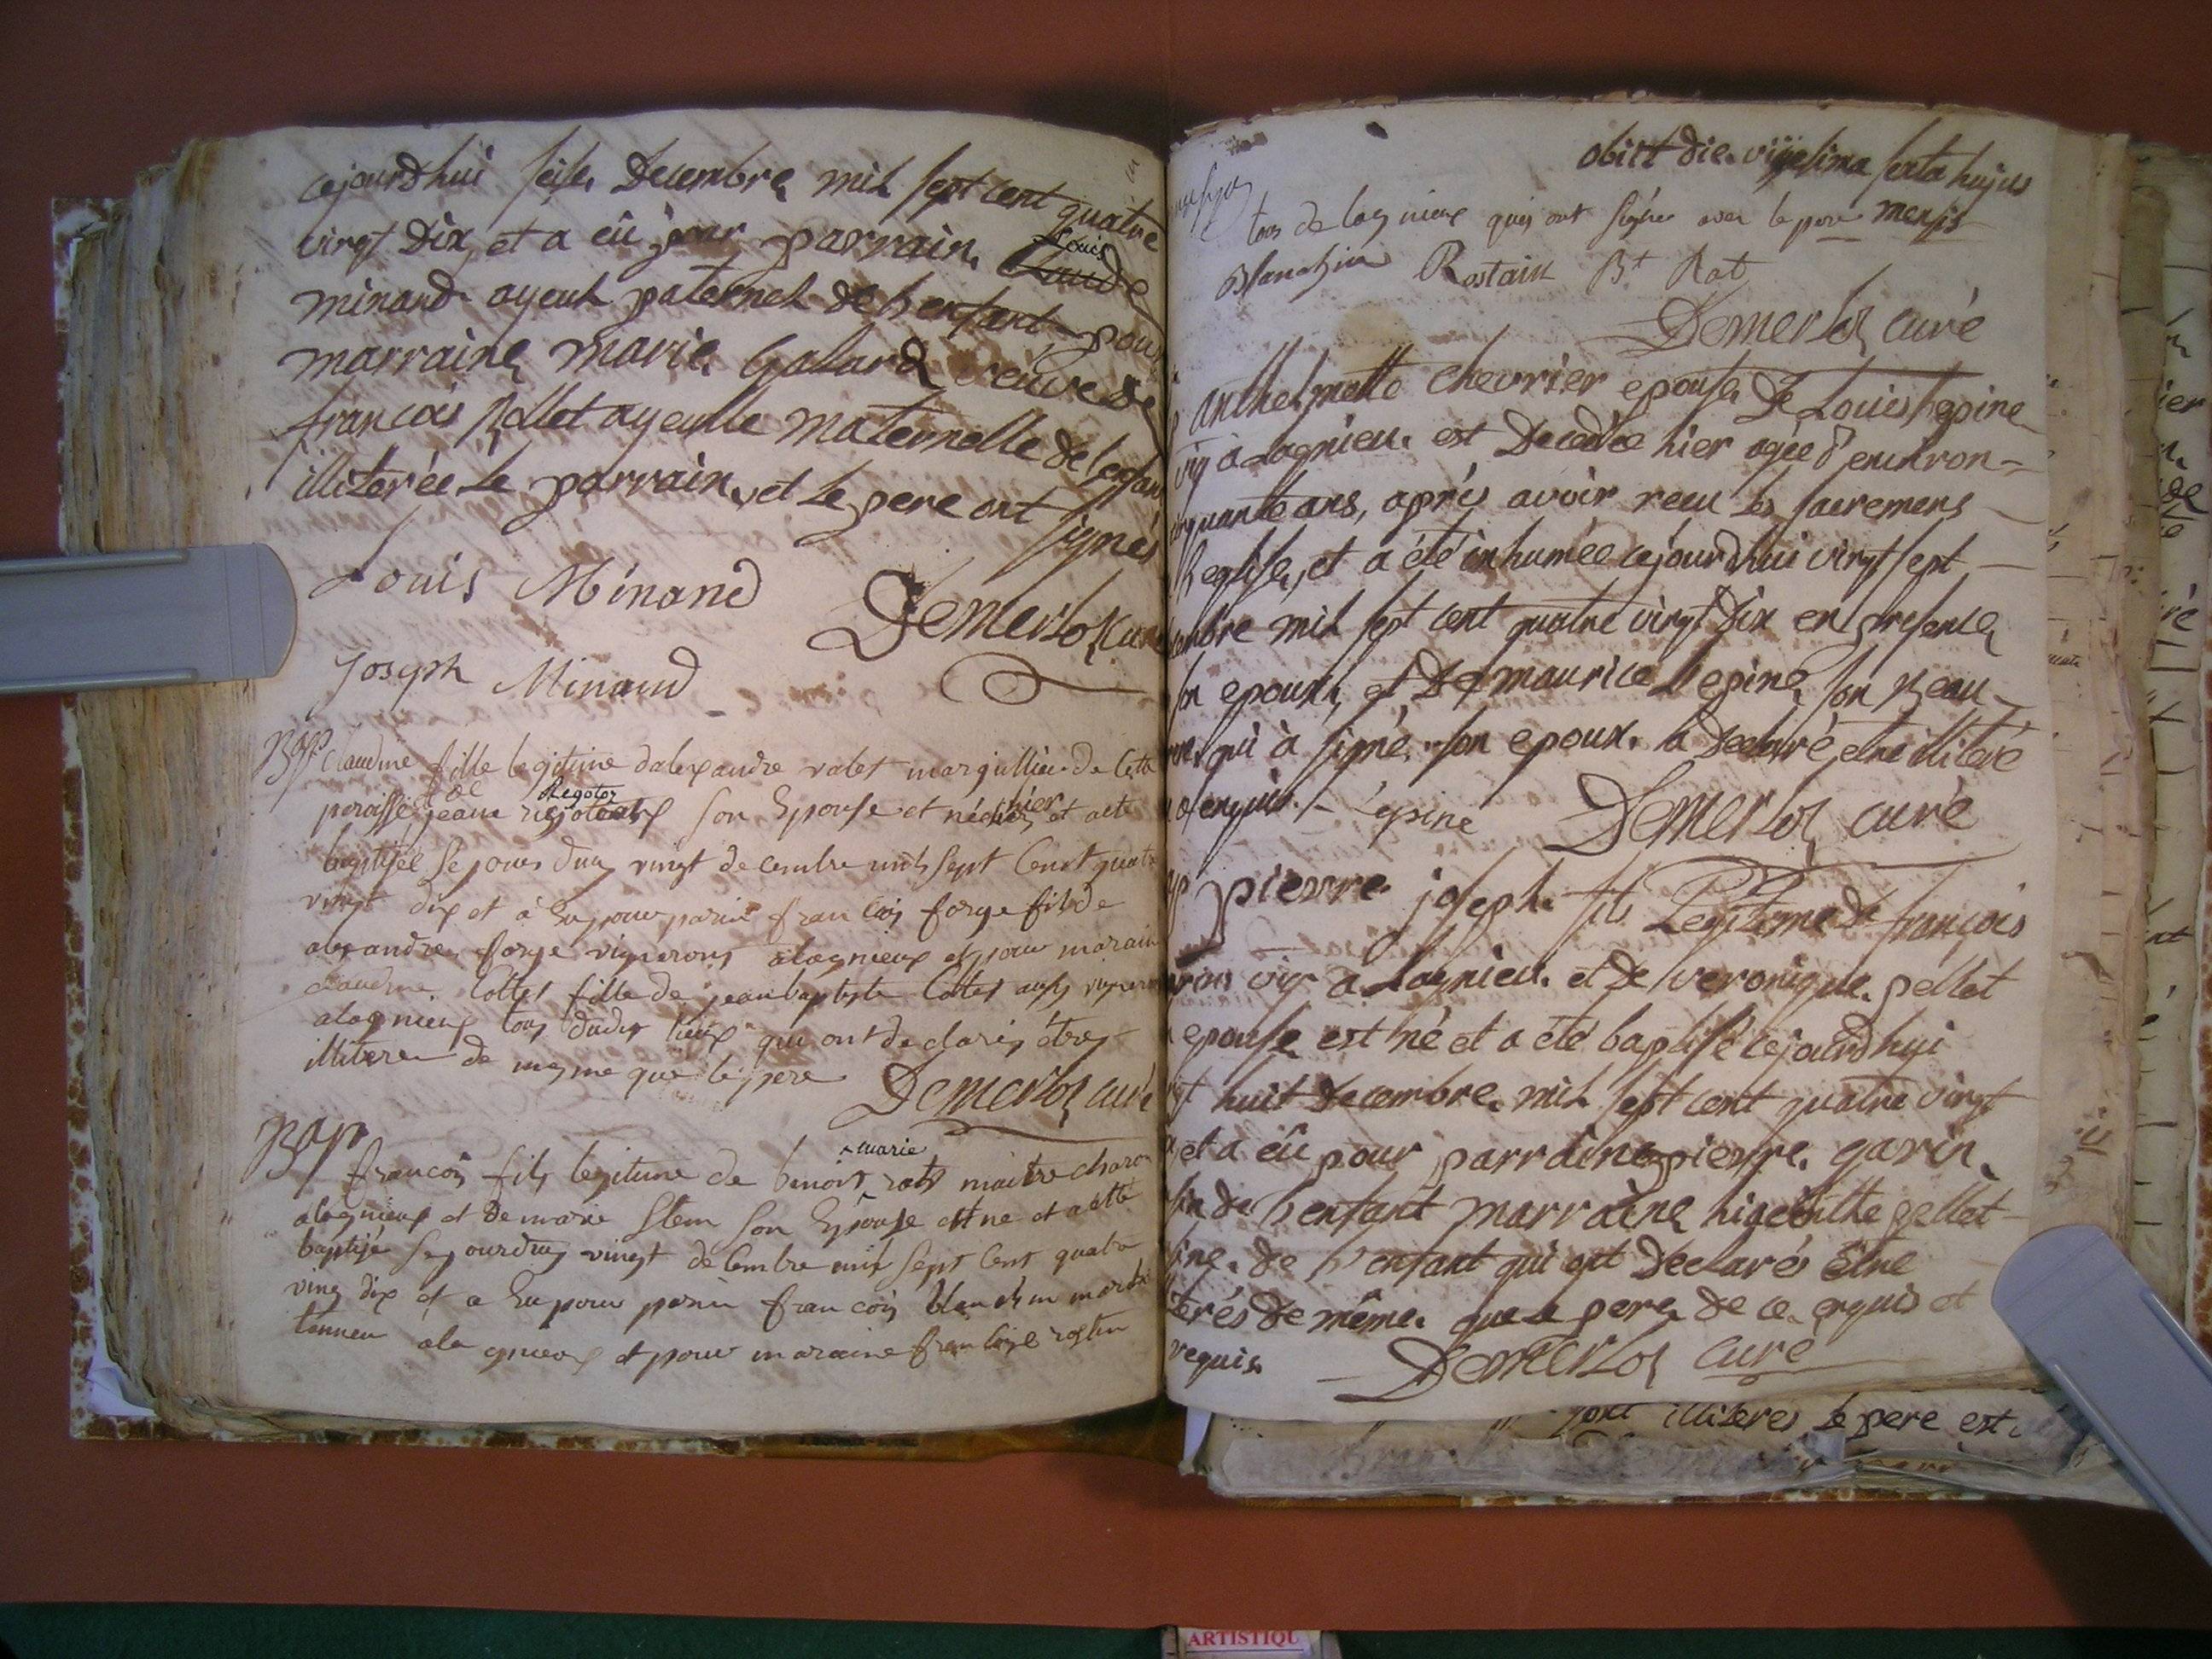 cejourdhui seise Decembre mil sept cent quatre
vingt Dix, et a eû pour parrain Louis
minand ayeul paternel de l'enfant pour
marraine marie Galard veuve de
francois pellet ayeulle maternelle de l'enfant
illiterée le parrain et le pere ont signés
Louis Minand
Demerloz curé
Joseph Minand
Bap
claudine fille legitime dalexandre ratet margullier de cette
paroisse et de jeane Regotaz son Epouse et née hier et aete
baptisée sejourduy vingt decembre mil sept Cent quatre
vingt dix et à Eu pour parin francois forge fils de
alexandre forge vigneron alagnieux et pour maraine
claudine Cottet fille de jean baptiste Cottet aussy vigneron
alagnieux tous dudit lieux qui ont declarés être
illitere de mesme que le pere
Demerloz curé
Bap
francois fils legitime de benoit marie rat maitre charon
alagnieux et de marie Stem son Epouse est ne et aetté
baptisé sejourduy vingt decembre mil sept Cent quatre
ving dix et a Eu pour parin francois blanchin marchd
tanneur à lagnieux et pour maraine francoise rostin
obiit die vigesima sexta hujus
mensis
tous de lagnieux quiy ont signer avec le pere
Blanchin Rostain Bt Rat
Demerloz curé
anthelmette chevrier epouse De Louis lepine
vig a Lagnieu est Decedée hier agée d'environ
quante ans, aprés avoir recu les sacremens
l'eglise, et a été inhumée cejourdhui vingt sept
cembre mil sept cent quatre vingt Dix en presence
son epoux, et De maurice lepine son beau
qui à signé son epoux a Declaré etre illiteré
enquis. Lepine Demerloz curé
pierre joseph fils Legitime De françois
vig a Lagnieu et De veronique pellet
epouse est né et a été baptisé cejourdhui
huit Decembre mil sept cent quatre vingt
et a eû pour parrain pierre garin
de l'enfant marraine higeinthe pellet
de l'enfant qui ont Declarés être
terés de même que le pere de ce enquis et
requis.
Demerloz curé
sont illiteres le pere est
ARTISTIQU